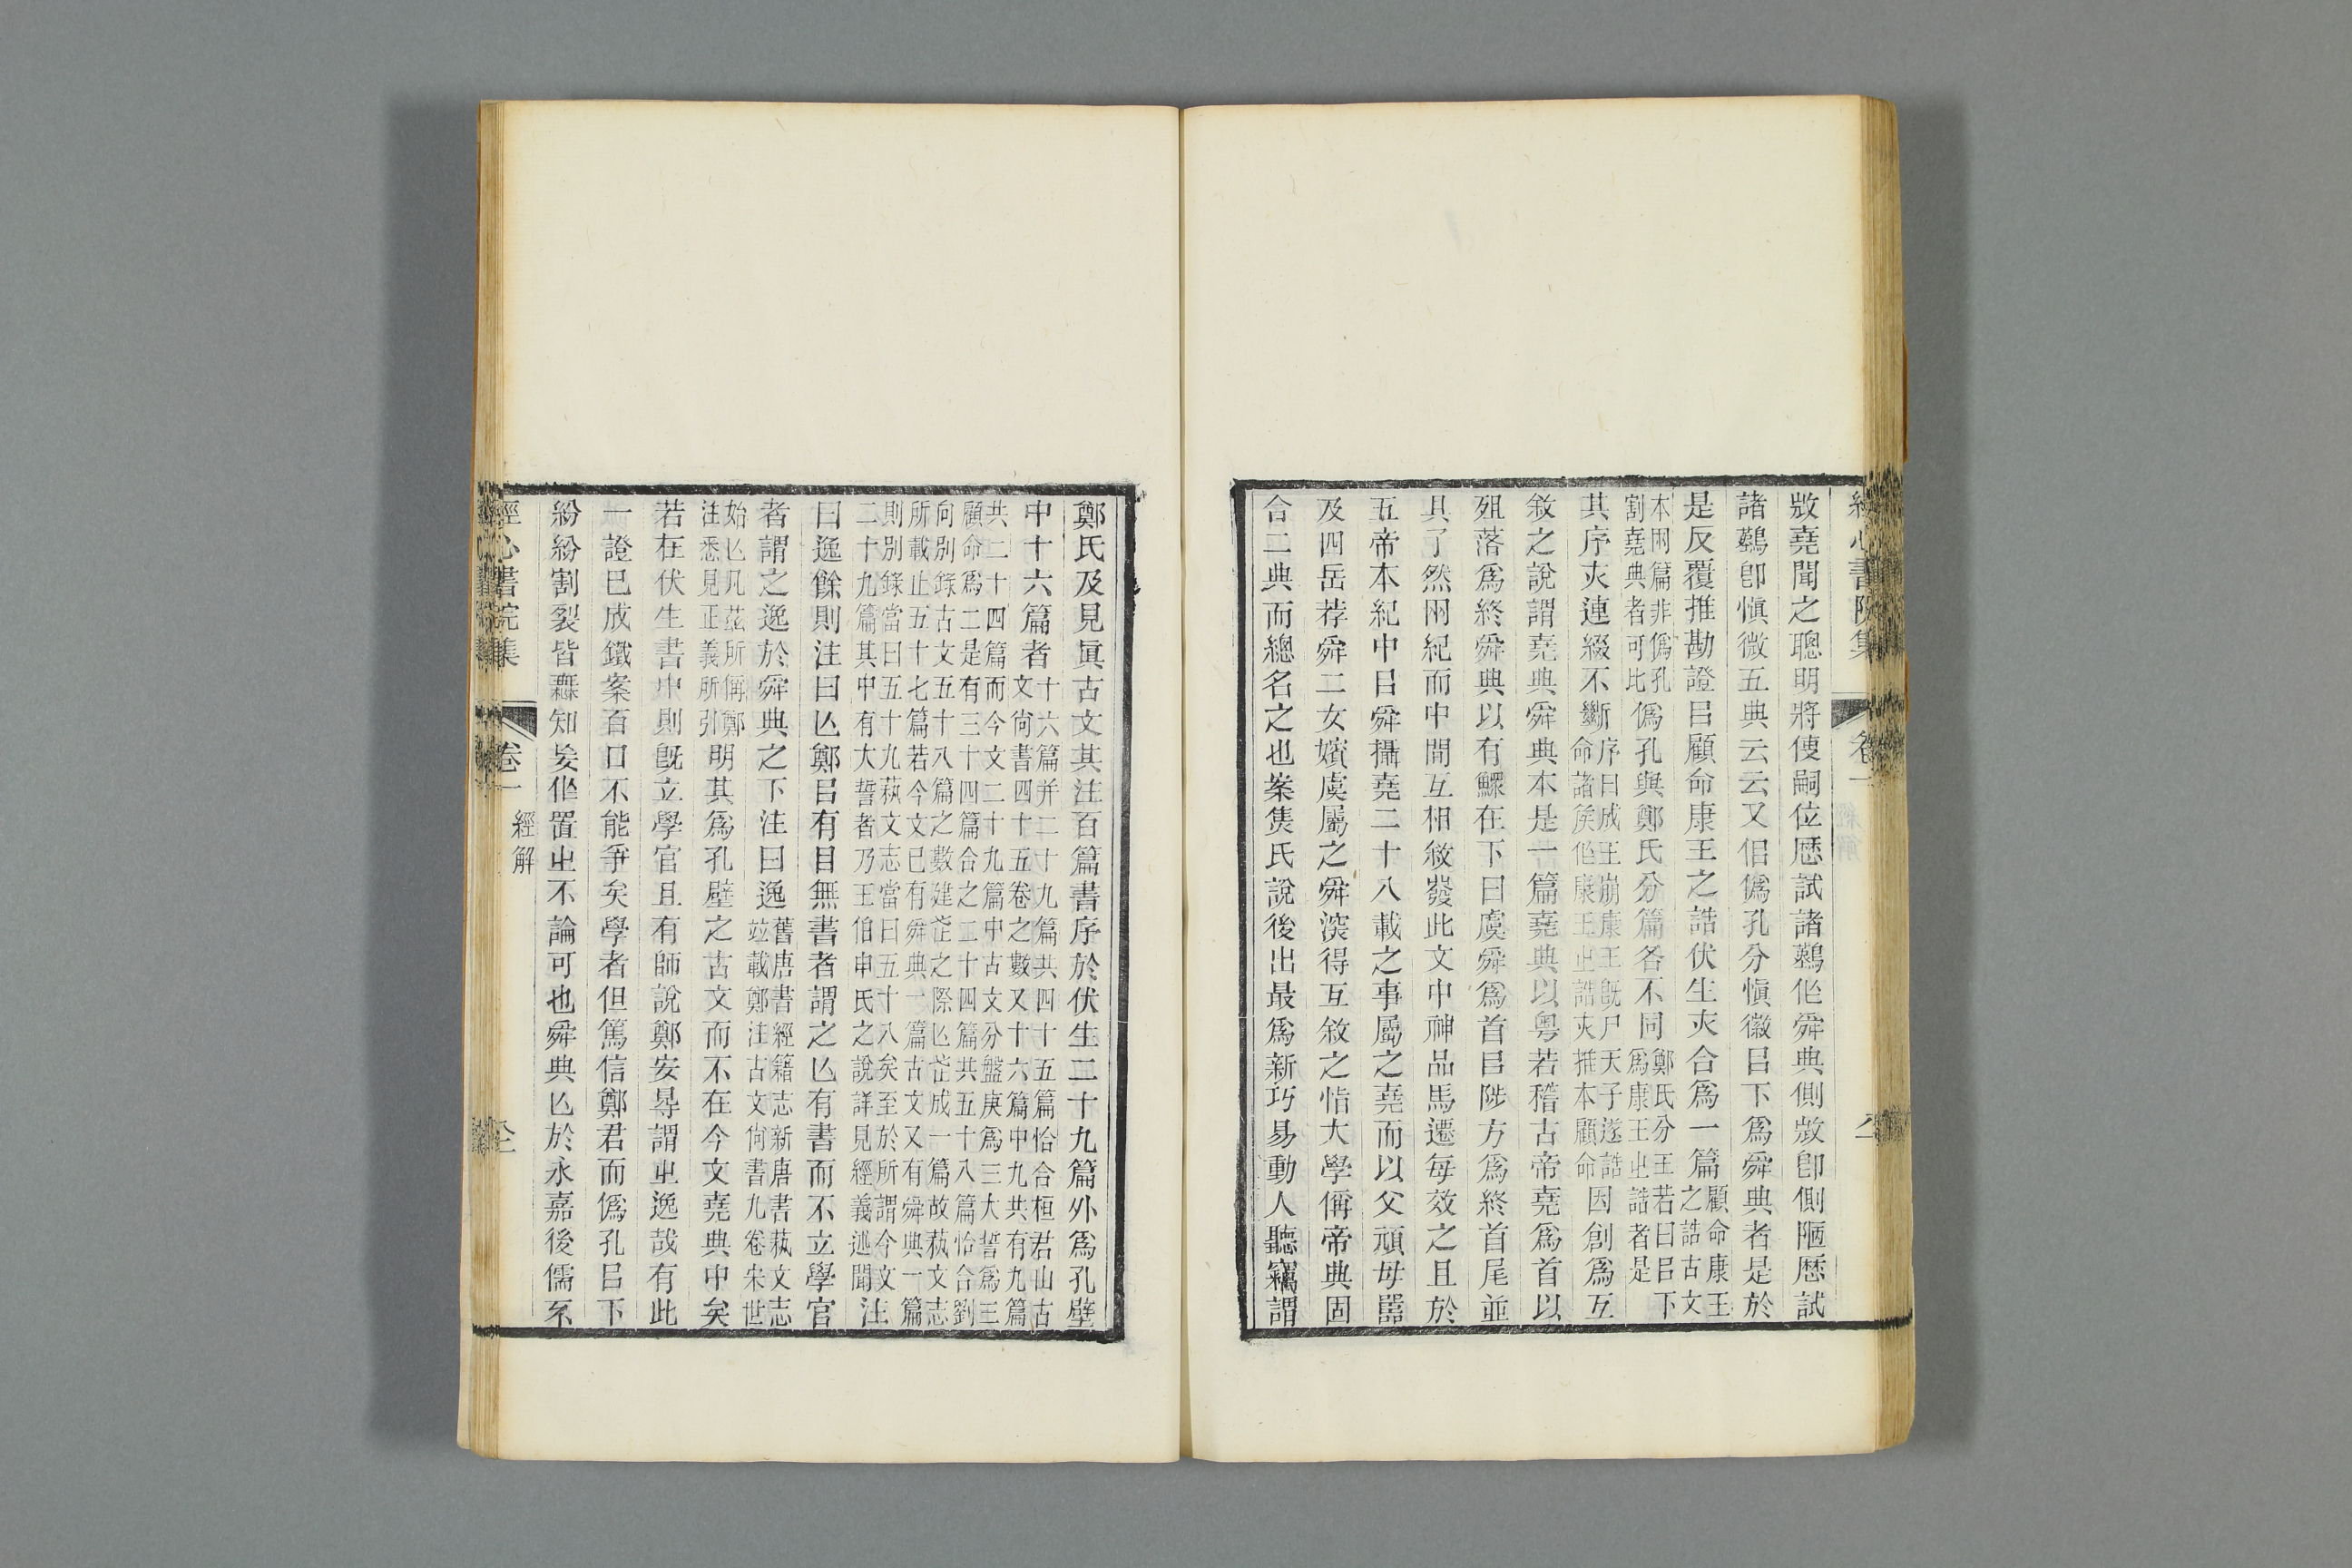 經心書院集 卷一
㪟堯聞之聰明將使嗣位歷試諸囏作舜典側㪟卽側陋歷試
諸囏卽愼微五典云云又佀僞孔分愼徽㠯下爲舜典者是於
是反覆推勘證㠯顧命康王之誥伏生亦合爲一篇顧命康王之誥古文
本兩篇非僞孔割堯典者可比僞孔與鄭氏分篇各不同鄭氏分王若曰㠯下爲康王㞢誥者是
其序亦連綴不斷序曰成王崩康王旣尸天子遂誥命諸矦作康王㞢誥亦推本顧命因創爲互
敘之說謂堯典舜典本是一篇堯典以粤若稽古帝堯爲首以
殂落爲終舜典以有鰥在下曰虞舜爲首㠯陟方爲終首尾並
具了然兩紀而中閒互相敘發此文中神品馬遷每效之且於
五帝本紀中㠯舜攝堯二十八載之事屬之堯而以父頑母嚚
及四岳荐舜二女嬪虞屬之舜深得互敘之恉大學偁帝典固
合二典而總名之也案雋氏說後出最爲新巧易動人聽竊謂
鄭氏及見眞古文其注百篇書序於伏生二十九篇外爲孔壁
中十六篇者十六篇并二十九篇共四十五篇恰合桓君山古文尙書四十五卷之數又十六篇中九共有九篇
共二十四篇而今文二十九篇中古文分盤庚爲三大誓爲三顧命爲二是有三十四篇合之二十四篇共五十八篇恰合劉
向別錄古文五十八篇之數建茊之際亾茊成一篇故蓺文志所載止五十七篇若今文已有舜典一篇古文又有舜典一篇
則別錄當曰五十九蓺文志當曰五十八矣至於所謂今文二十九篇其中有大誓者乃王伯申氏之說詳見經義述聞注
曰逸餘則注曰亾鄭㠯有目無書者謂之亾有書而不立學官
者謂之逸於舜典之下注曰逸舊唐書經籍志新唐書蓺文志竝載鄭注古文尙書九卷宋世
始亾凡茲所偁鄭注悉見正義所引明其爲孔壁之古文而不在今文堯典中矣
若在伏生書中則旣立學官且有師說鄭安㝵謂㞢逸哉有此
一證已成鐵案百口不能爭矣學者但篤信鄭君而僞孔㠯下
紛紛割裂皆無知妄作置㞢不論可也舜典亾於永嘉後儒不
經心書院集 卷一 經解